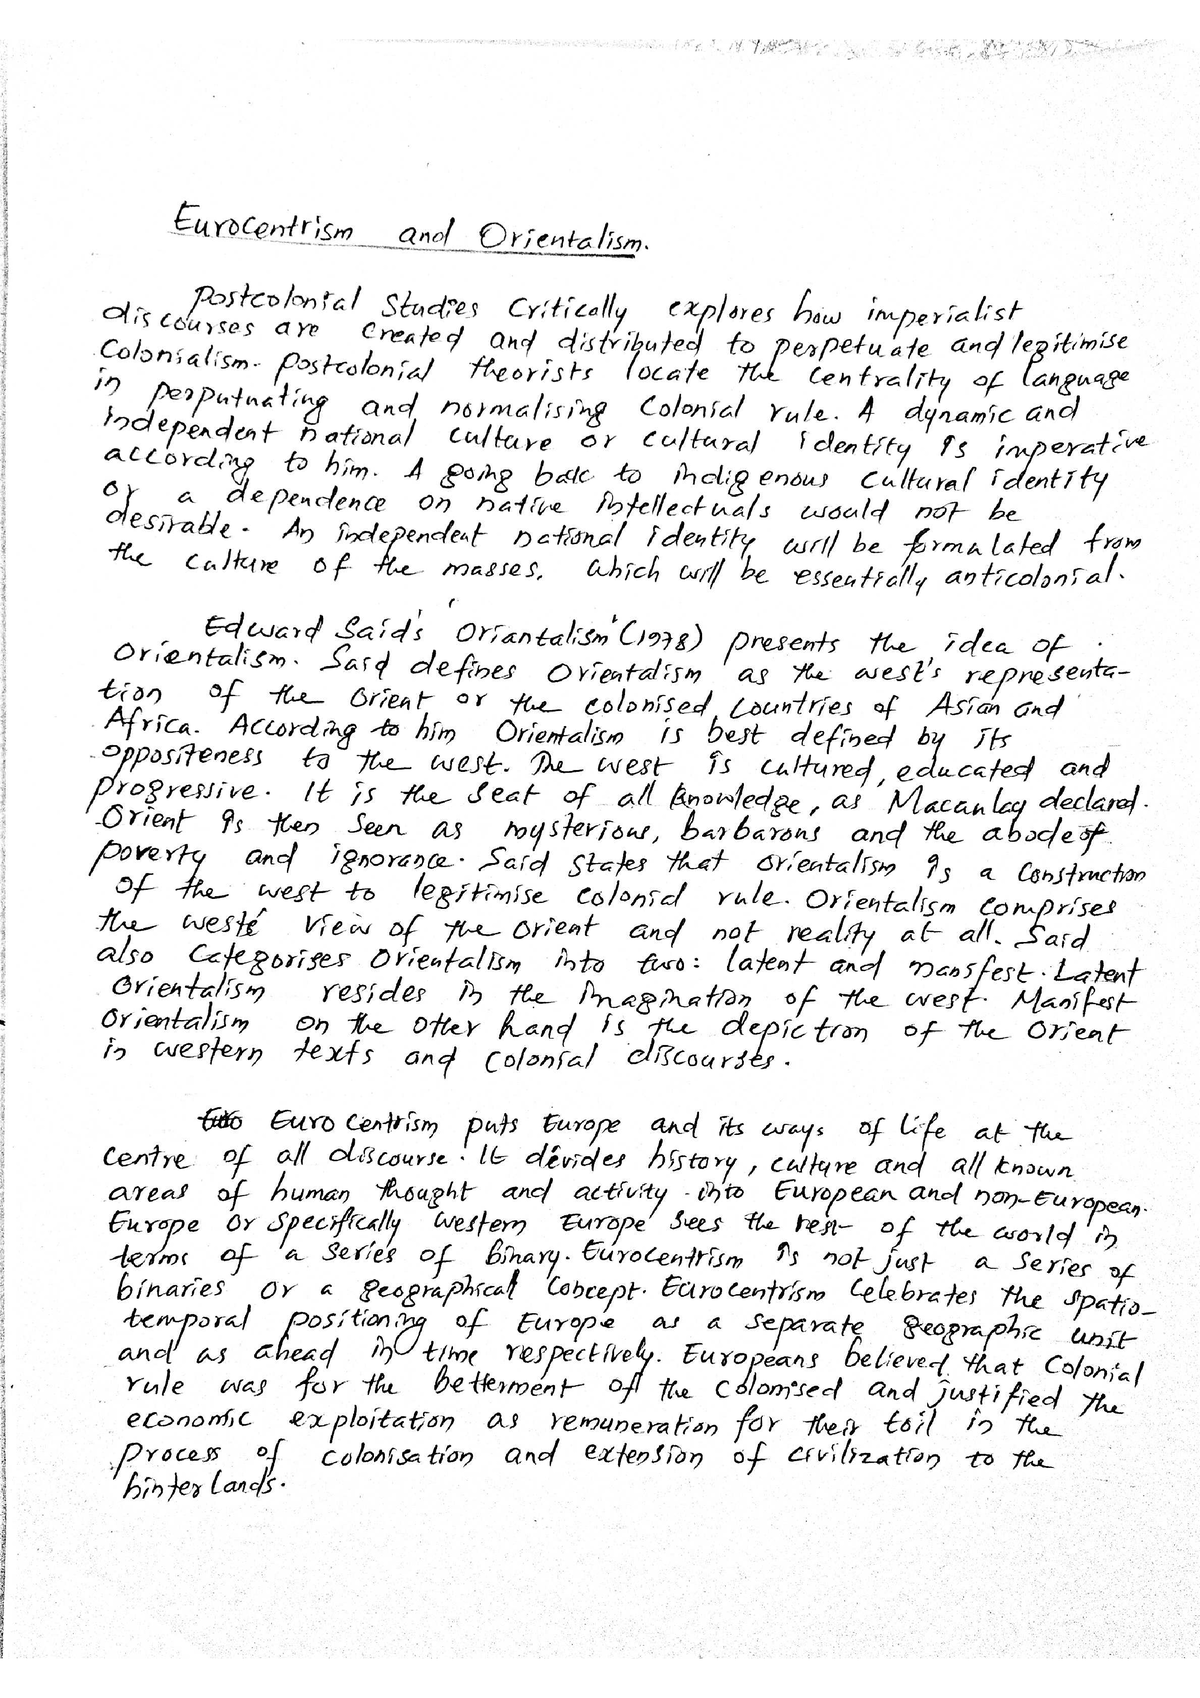 Eurocentrism and Orientalism.
Postcolonial Studies Critically explores how imperialist
discourses are created and distributed to perpetuate and legitimise
Colonialism. Postcolonial theorists locate the centrality of language
in perputnating and normalising Colonial rule. A dynamic and
independent national culture or cultural identity is imperative
according to him. A going bak to indigenous Cultural identity
or a dependence on native intellectuals would not be
desirable. An independent national identity will be formulated from
the culture of the masses, which will be essentially anticolonial.
Edward Said's 'Oriantalism' (1978) presents the idea of
Orientalism. Said defines Orientalism as the west's representa-
tion of the Orient or the colonised Countries of Asian and
Africa. According to him Orientalism is best defined by its
oppositeness to the west. The west is cultured, educated and
progressive. It is the seat of all knowledge, as Macaulay declared.
Orient is then seen as mysterious, barbarous and the abode of
poverty and ignorance. Said states that Orientalism is a construction
of the west to legitimise colonial rule. Orientalism comprises
the west's view of the Orient and not reality at all. Said
also Categorises Orientalism into two: latent and manifest. Latent
Orientalism resides in the imagination of the west. Manifest
Orientalism on the other hand is the depiction of the Orient
in western texts and Colonial discourses.
Eurocentrism puts Europe and its ways of life at the
centre of all discourse. It devides history, culture and all known
areas of human thought and activity into European and non-European.
Europe or specifically Western Europe sees the rest of the world in
terms of a series of binary. Eurocentrism is not just a series of
binaries or a geographical Concept. Eurocentrism Celebrates the spatio-
temporal positioning of Europe as a separate geographic unit
and as ahead in time respectively. Europeans believed that Colonial
rule was for the betterment of the Colonised and justified the
economic exploitation as remuneration for their toil in the
process of colonisation and extension of civilization to the
hinterlands.